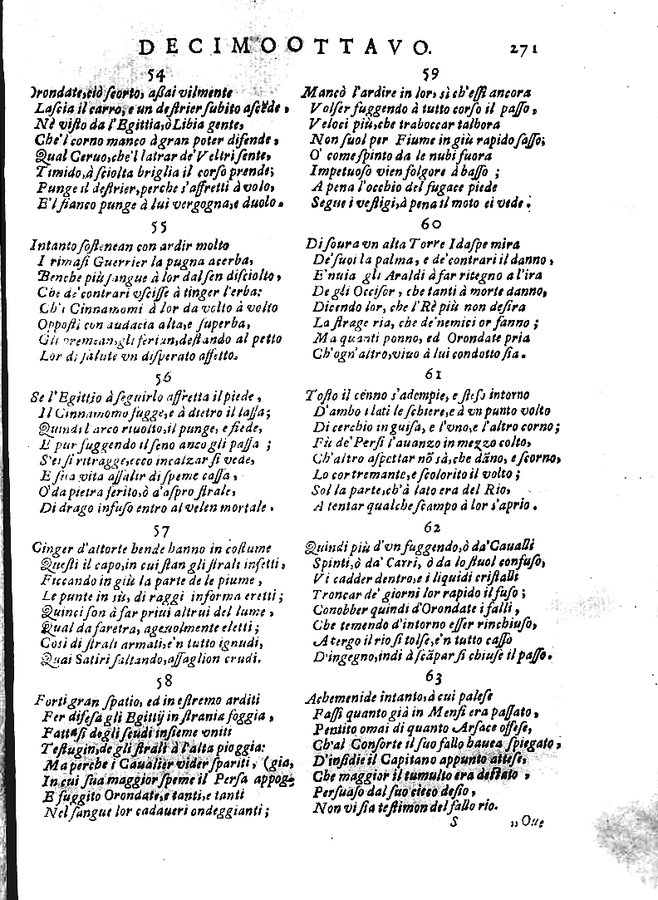 DECIMOOTTAVO. 271
54
Orondate, ciò scorto, assai vilmente
Lascia il carro, e un destrier subito ascēde,
Nè visto da l'Egittia, ò Libia gente,
Che'l corno manco à gran poter difende,
Qual Ceruo, che'l latrar de' Veltri sente,
Timido, à sciolta briglia il corso prende;
Punge il destrier, perche s'affretti à volo,
E'l fianco punge à lui vergogna, e duolo.
55
Intanto sostenean con ardir molto
I rimasi Guerrier la pugna acerba,
Benche più sangue à lor dal sen disciolto,
Che de' contrari vscisse à tinger l'erba:
Ch'i Cinnamomi à lor da volto à volto
Opposti con audacia alta, e superba,
Gli premean, gli ferian, destando al petto
Lor di salute vn disperato affetto.
56
Se l'Egittio à seguirlo affretta il piede,
Il Cinnamomo fugge, e à dietro il lassa;
Quindi l'arco riuolto, il punge, e fiede,
E pur fuggendo il seno anco gli passa;
S'ei si ritragge, ecco incalzar si vede,
E sua vita assalir di speme cassa,
O' da pietra ferito, ò d'aspro strale,
Di drago infuso entro al velen mortale.
57
Cinger d'attorte bende hanno in costume
Questi il capo, in cui stan gli strali insetti,
Ficcando in giù la parte de le piume,
Le punte in sù, di raggi informa eretti;
Quinci son à far priui altrui del lume,
Qual da faretra, ageuolmente eletti;
Così di strali armati, e'n tutto ignudi,
Quai Satiri saltando, assaglion crudi.
58
Forti gran spatio, ed in estremo arditi
Per difesa gli Egittij in strania foggia,
Fattasi degli scudi insieme vniti
Testugin, de gli strali à l'alta pioggia:
Ma perche i Caualier vider spariti, (gia,
In cui sua maggior speme il Persa appog-
E fuggito Orondate, e tanti, e tanti
Nel sangue lor cadaueri ondeggianti;
59
Mancò l'ardire in lor, sì ch'essi ancora
Volser fuggendo à tutto corso il passo,
Veloci più, che traboccar talhora
Non suol per Fiume in giù rapido sasso;
O' come spinto da le nubi fuora
Impetuoso vien folgore à basso;
A pena l'occhio del fugace piede
Segue i vestigi, à pena il moto ei vede.
60
Di soura vn alta Torre Idaspe mira
De' suoi la palma, e de' contrari il danno,
E'nuia gli Araldi à far ritegno a l'ira
De gli Occisor, che tanti à morte danno,
Dicendo lor, che'l Rè più non desira
La strage ria, che de' nemici or fanno;
Ma quanti ponno, ed Orondate pria
Ch'ogn'altro, viuo à lui condotto sia.
61
Tosto il cenno s'adempie, e stese intorno
D'ambo i lati le schiere, e à vn punto volto
Di cerchio in guisa, e l'vno, e l'altro corno;
Fù de' Persi l'auanzo in mezzo colto,
Ch'altro aspettar nō sà, che dāno, e scorno,
Lo cor tremante, e scolorito il volto;
Sol la parte, ch'à lato era del Rio,
A tentar qualche scampo à lor s'aprio.
62
Quindi più d'vn fuggendo, ò da' Caualli
Spinti, ò da' Carri, ò da lo stuol confuso,
Vi cadder dentro, e i liquidi cristalli
Troncar de' giorni lor rapido il fuso;
Conobber quindi d'Orondate i falli,
Che temendo d'intorno esser rinchiuso,
A tergo il rio si tolse, e'n tutto casso
D'ingegno, indi à scāpar si chiuse il passo.
63
Achemenide intanto, à cui palese
Fassi quanto già in Mensi era passato,
Pentito omai di quanto Arsace offese,
Ch'al Consorte il suo fallo hauea spiegato,
D'insidie il Capitano appunto attese,
Che maggior il tumulto era destato,
Persuaso dal suo cieco desio,
Non vi sia testimon del fallo rio.
S ,,Oue